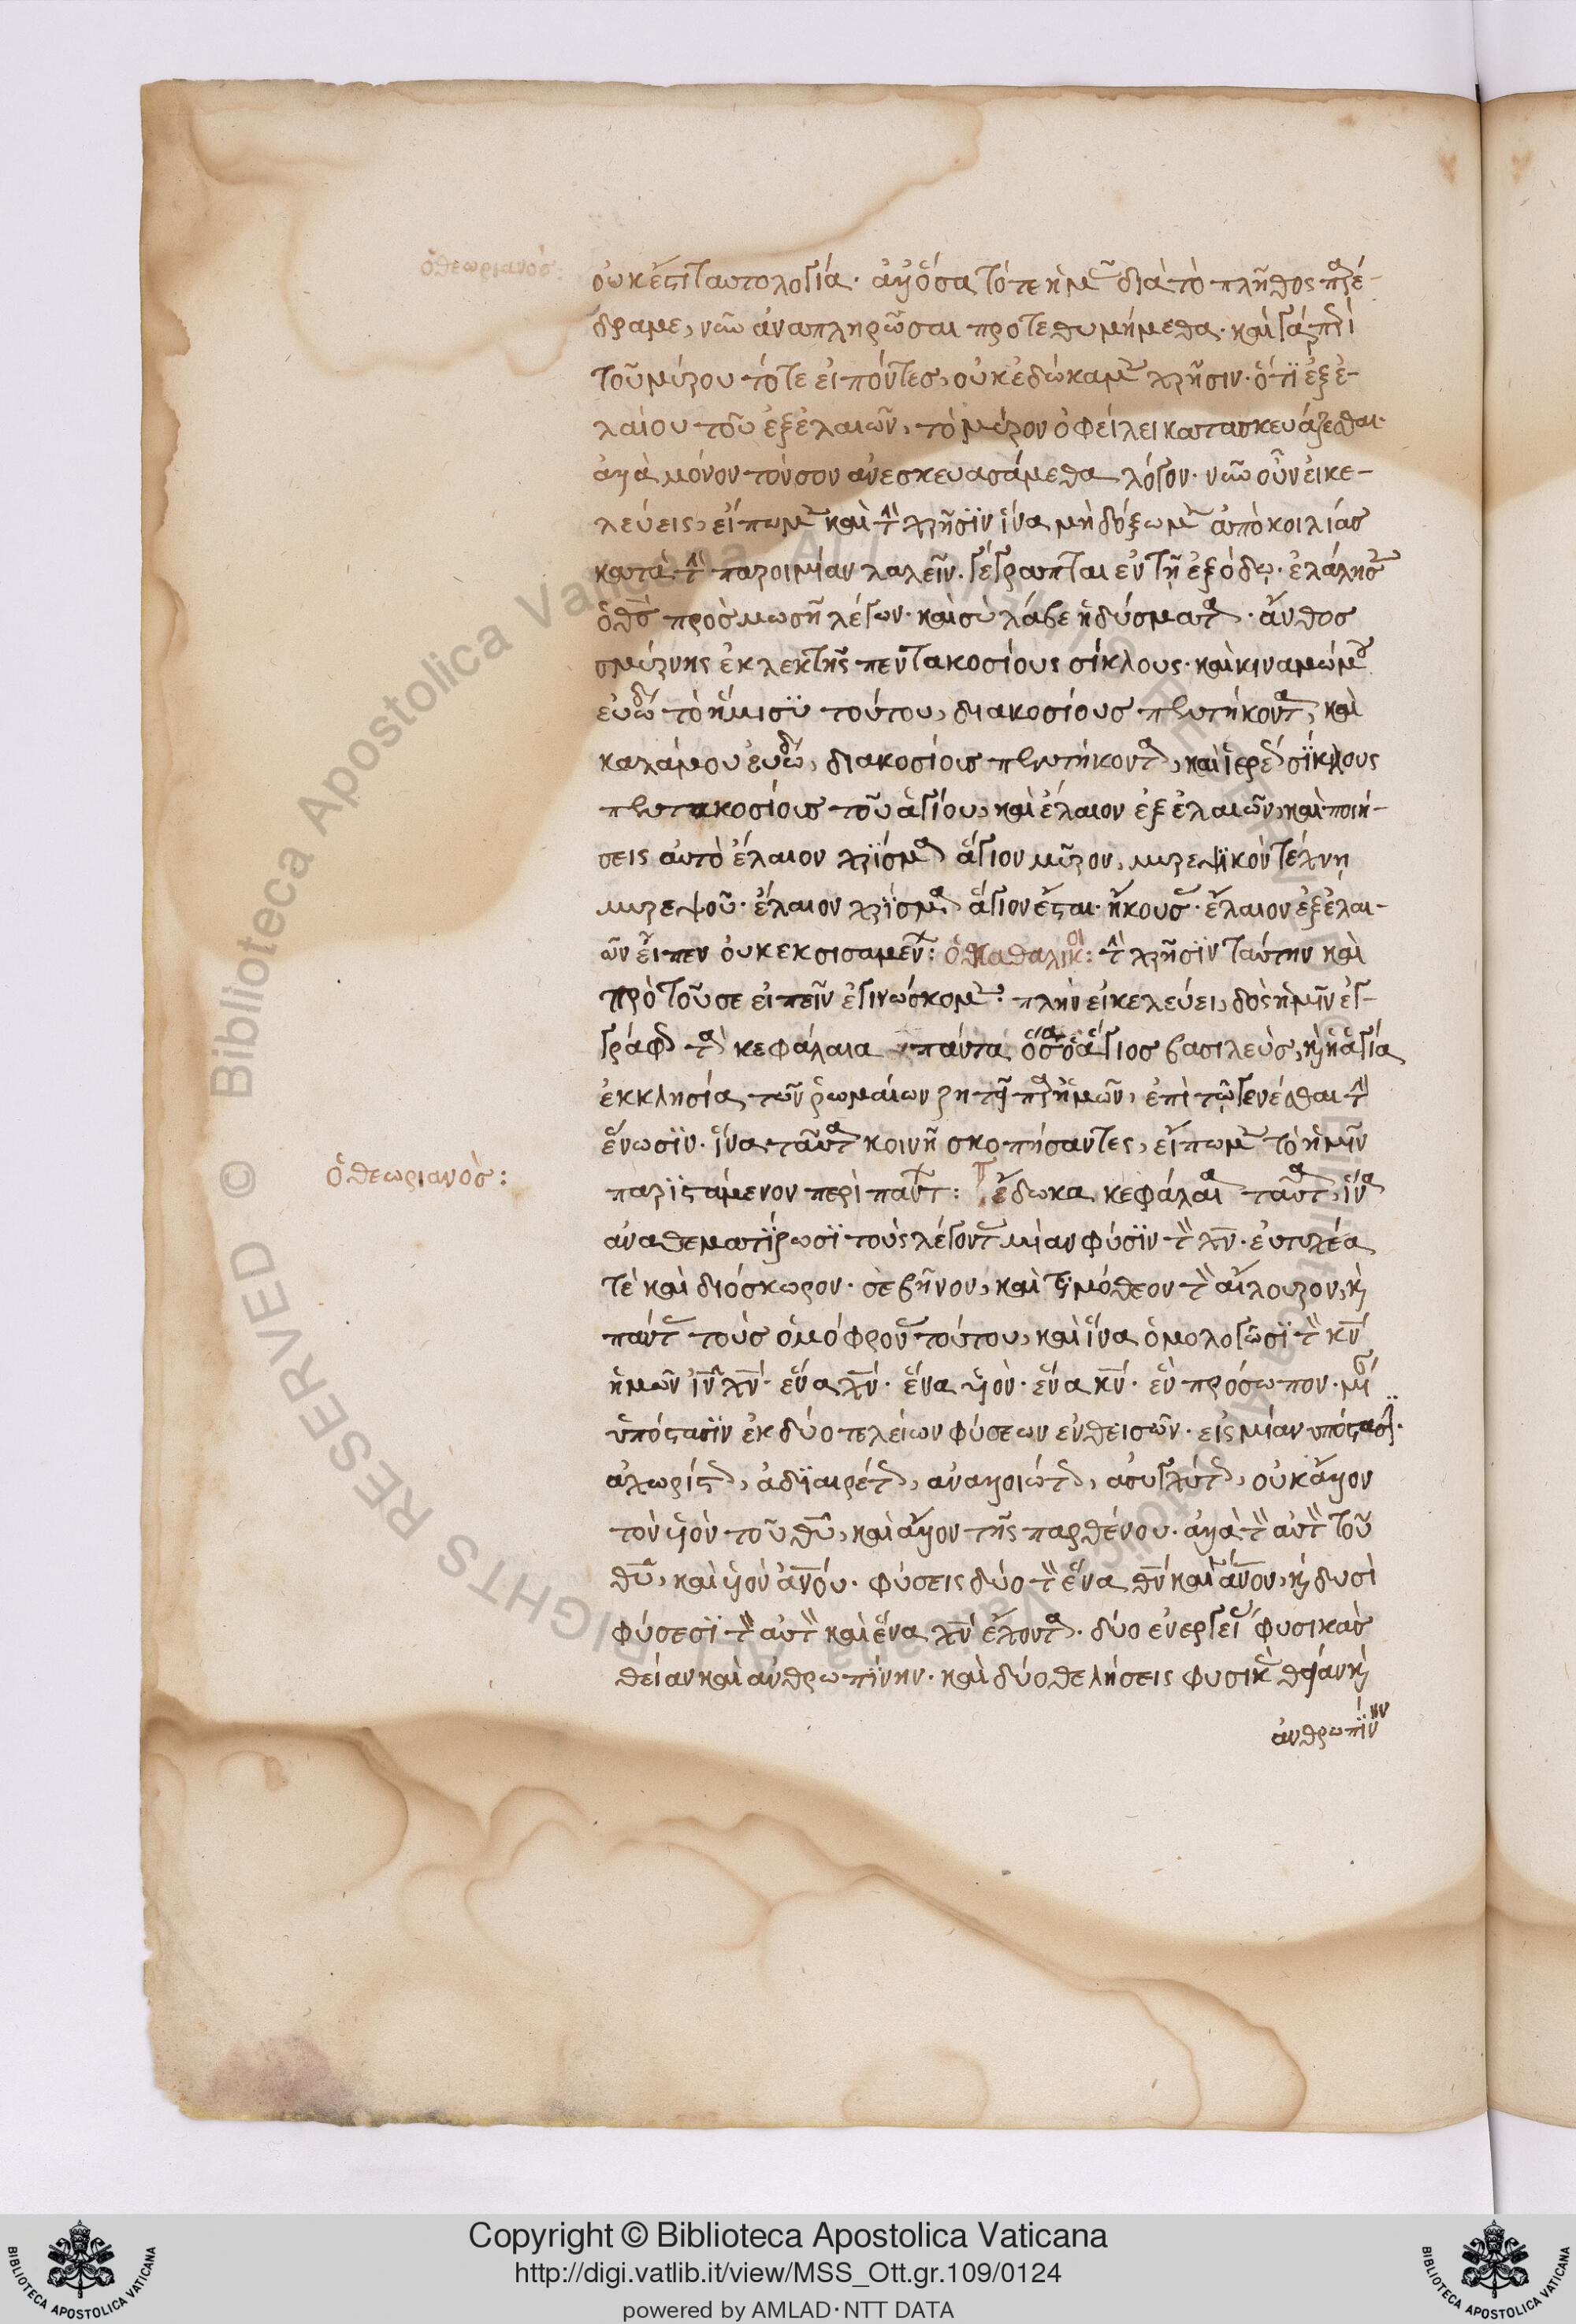 ὁ θεωριανός:
οὐκ ἔστι ταυτολογία· ἀλλ' ὅσα τότε ἡμᾶς διὰ τὸ πλῆθος παρέ-
δραμε, νῦν ἀναπληρῶσαι προτεθυμήμεθα· καὶ γὰρ περὶ
τοῦ μύρου τότε εἰπόντες, οὐκ ἐδώκαμεν χρῆσιν· ὅτι ἐξ ἐ-
λαίου τοῦ ἐξ ἐλαιῶν, τὸ μύρον ὀφείλει κατασκευάζεσθαι·
ἀλλὰ μόνον τὸν σὸν ἀνεσκευασάμεθα λόγον· νῦν οὖν εἰ κε-
λεύεις, εἴπωμεν καὶ τὴν χρῆσιν ἵνα μὴ δόξωμεν ἀπὸ κοιλίας
κατὰ τὴν παροιμίαν λαλεῖν. γέγραπται ἐν τῇ ἐξόδῳ· ἐλάλησε
ὁ θς πρὸς μωσῆ λέγων· καὶ σὺ λάβε ἡδύσματα· ἄνθος
σμύρνης ἐκλεκτῆς πεντακοσίους σίκλους· καὶ κιναμώμου
εὐώδους τὸ ἥμισυ τούτου, διακοσίους πεντήκοντα, καὶ
καλάμου εὐώδους, διακοσίους πεντήκοντα, καὶ ἴρεως σίκλους
πεντακοσίους τοῦ ἁγίου, καὶ ἔλαιον ἐξ ἐλαιῶν, καὶ ποιή-
σεις αὐτὸ ἔλαιον χρίσμα ἅγιον μύρον, μυρεψικὸν τέχνῃ
μυρεψοῦ· ἔλαιον χρίσμα ἅγιον ἔσται· ἤκουσας· ἔλαιον ἐξ ἐλαι-
ῶν εἶπεν οὐκ ἐκ σισαμένων: ὁ καθολικός: τὴν χρῆσιν ταύτην καὶ
πρὸ τοῦ σε εἰπεῖν ἐγινώσκομεν· πλὴν εἰ κελεύει, δὸς ἡμῖν ἐγ-
γράφως τὰ κεφάλαια πάντα ὅσα ὁ ἅγιος βασιλεὺς, καὶ ἡ ἁγία
ἐκκλησία τῶν ῥωμαίων ζητεῖ παρ' ἡμῶν, ἐπὶ τῷ γενέσθαι τὴν
ἕνωσιν· ἵνα ταῦτα κοινῇ σκοπήσαντες, εἴπωμεν τὸ ἡμῖν
ὁ θεωριανὸς:
παριστάμενον περὶ πάντων: ἔδωκα κεφάλαια ταῦτα, ἵνα
ἀναθεματίζωσι τοὺς λέγοντας μίαν φύσιν τὸν χν· εὐτυχέα
τὲ καὶ διόσκωρον· σεβῆνον, καὶ τιμόθεον τὸν αἴλουρον, καὶ
πάντας τοὺς ὁμόφρονας τούτου, καὶ ἵνα ὁμολογῶσι τὸν κν
ἡμῶν ιν χν· ἕνα χν· ἕνα υἱὸν· ἕνα κν· ἓν πρόσωπον· μίαν
ὑπόστασιν ἐκ δύο τελείων φύσεων ἑνθεισῶν· εἰς μίαν ὑπόστασιν·
ἀχωρίστως, ἀδιαιρέτως, ἀναλλοιώτως, ἀσυγχύτως, οὐκ ἄλλον
τὸν υἱὸν τοῦ θυ, καὶ ἄλλον τῆς παρθένου· ἀλλὰ τὸν αὐτὸν τοῦ
θυ, καὶ υἱὸν ανου· φύσεις δύο τὸν ἕνα θν καὶ ανον, καὶ δυσὶ
φύσεσι τὸν αὐτὸν καὶ ἕνα χν ἔχοντα· δύο ἐνεργείας φυσικὰς
θείαν καὶ ἀνθρωπίνην· καὶ δύο θελήσεις φυσικὰς θείαν καὶ
ἀνθρωπίνην
Copyright © Biblioteca Apostolica Vaticana
http://digi.vatlib.it/view/MSS_Ott.gr.109/0124
powered by AMLAD·NTT DATA